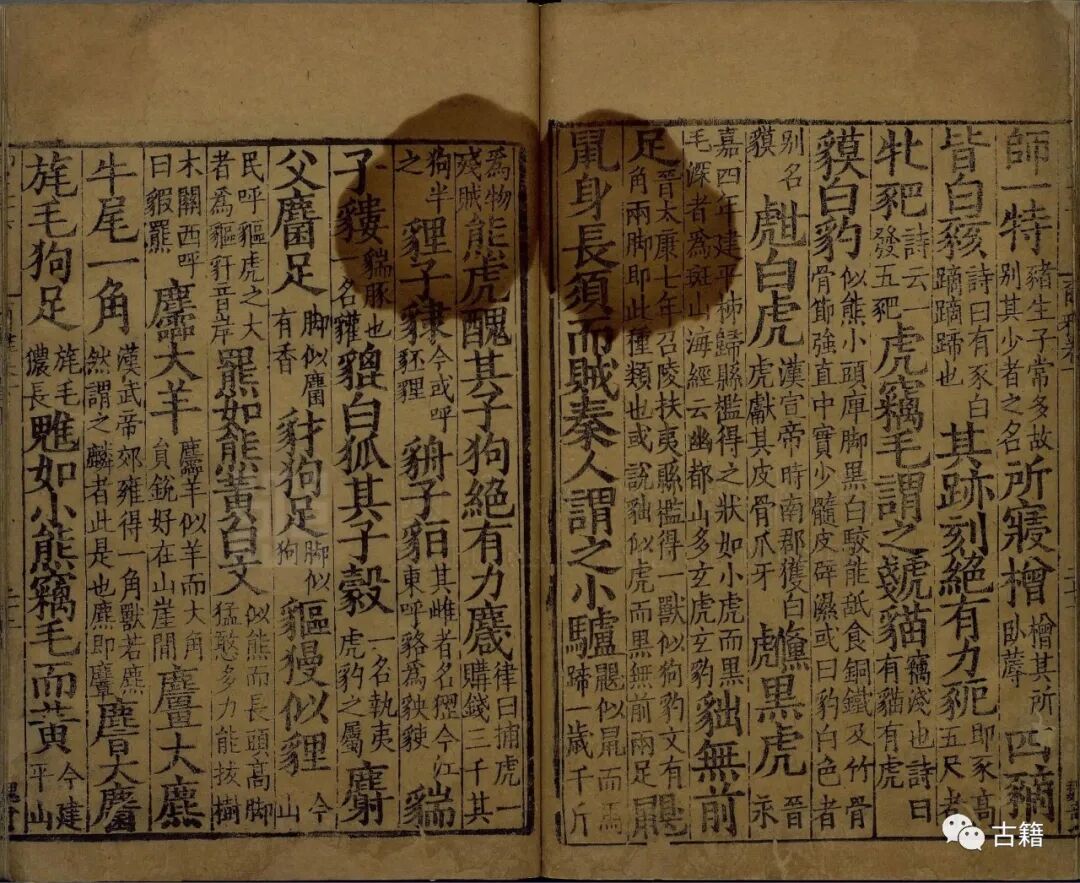 師一特豬生子常多故別其少者之名所寢橧橧其所臥蓐四豴
皆白豥詩曰有豕白蹢蹢蹄也其跡刻絕有力豟即豕高五尺者
牝豝詩云一發五豝虎竊毛謂之虦貓竊淺也詩曰有貓有虎
貘白豹似熊小頭庳脚黑白駮能舐食銅鐵及竹骨骨節強直中實少髓皮辟濕或曰豹白色者
別名貘甝白虎漢宣帝時南郡獲白虎獻其皮骨爪牙虪黑虎晉永
嘉四年建平秭歸縣檻得之狀如小虎而黑毛深者為斑山海經云幽都山多玄虎玄豹貀無前
足晉太康七年召陵扶夷縣檻得一獸似狗豹文有角兩脚即此種類也或說貀似虎而黑無前兩足鼳
鼠身長須而賊秦人謂之小驢鼳似鼠而馬蹄一歲千斤
爲物殘賊熊虎醜其子狗絕有力麙律曰捕虎一購錢三千其
狗半之貍子隸今或呼豾貍貈子貆其雌者名今江東呼貉為貒
子貗貒豚也一名貛貔白狐其子豰一名執夷虎豹之屬麝
父麕足脚似麕有香豺狗足脚似狗貙獌似貍今山
民呼貙虎之大者為貙豻音岸羆如熊黃白文似熊而長頭高脚猛憨多力能拔樹
木關西呼曰貑羆麢大羊麢羊似羊而大角貟銳好在山崖間麠大麃
牛尾一角漢武帝郊雍得一角獸若麃然謂之麟者此是也麃即麞大麕
旄毛狗足旄毛濃長魋如小熊竊毛而黃今建平山
古籍